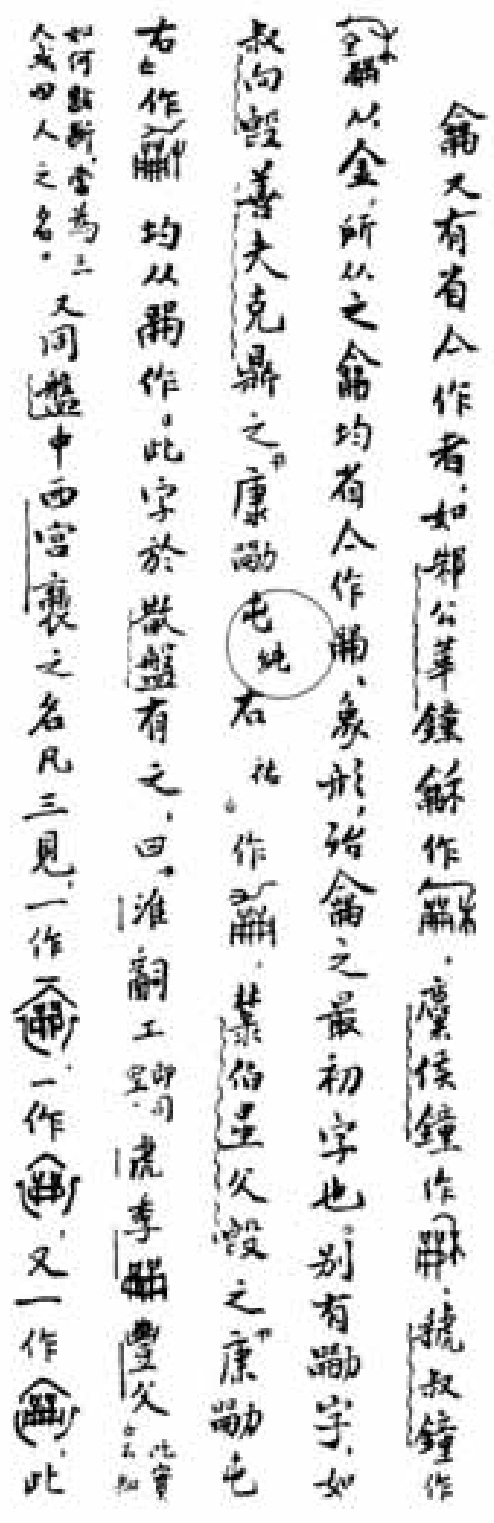 龠又有省亼作者，如邾公華鐘龢作，侯鐘作，虢叔鐘作
从金，所从之龠均省亼作、象形，殆龠之最初字也。别有字，如
叔向𣪘善夫克鼎之“康屯純右祐。”作，伯星父𣪘之“康屯
右”作均从作。此字於散盤有之，曰“淮𤔲工即司空。虎孛豐父此實不知
如何點斷，當為二人或四人之名。又同盤中西宮襄之名凡三見，一作，一作，又一作，此